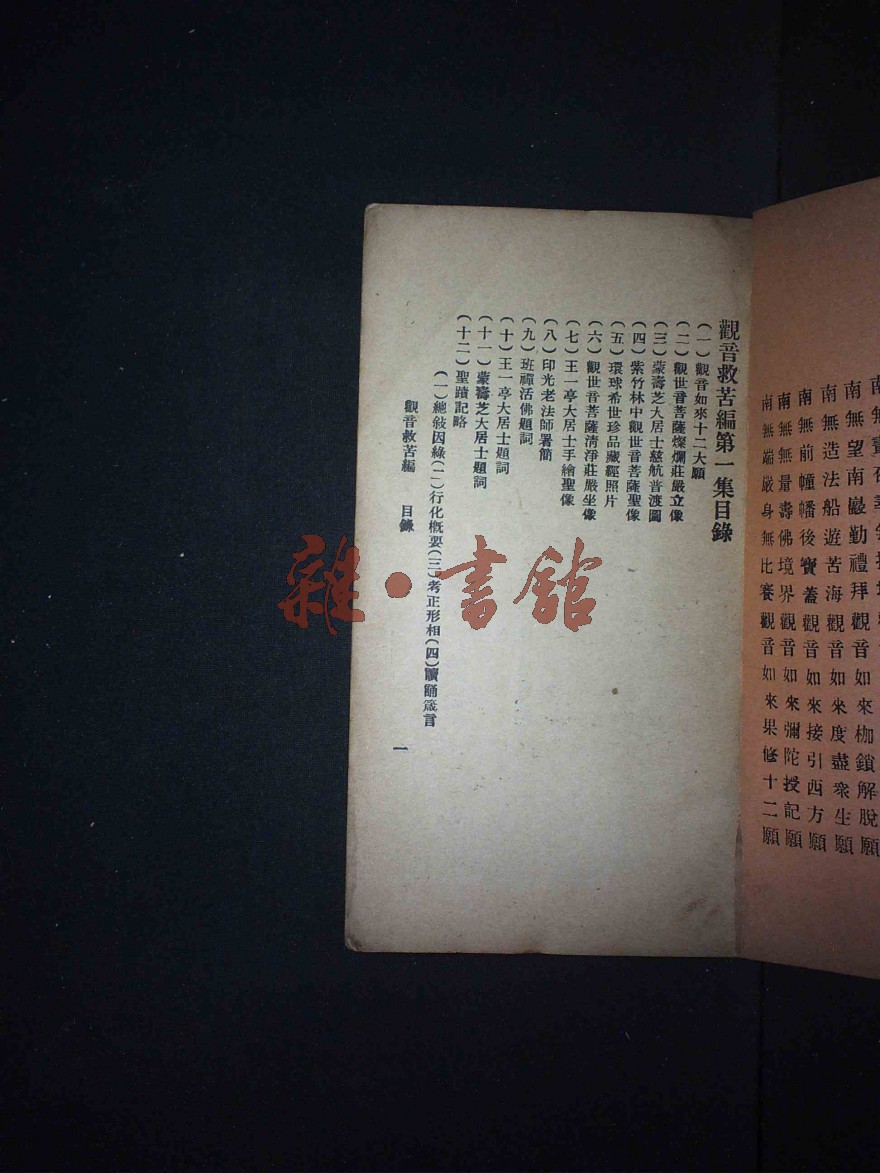 南無望南巖勤禮拜觀音如來枷鎖解脫願
南無造法船遊苦海觀音如來度盡衆生願
南無前幢幡後寶蓋觀音如來接引西方願
南無無量壽佛境界觀音如來彌陀授記願
南無端嚴身無比賽觀音如來果修十二願
觀音救苦編第一集目錄
(一)觀音如來十二大願
(二)觀世音菩薩燦爛莊嚴立像
(三)蒙壽芝大居士慈航普渡圖
(四)紫竹林中觀世音菩薩聖像
(五)環球希世珍品藏經照片
(六)觀世音菩薩淸淨莊嚴坐像
(七)王一亭大居士手繪聖像
(八)印光老法師署簡
(九)班禪活佛題詞
(十)王一亭大居士題詞
(十一)蒙壽芝大居士題詞
(十二)聖蹟記略
(一)總敍因緣(二)行化概要(三)考正形相(四)贖誦箴言
觀音救苦編 目錄 一
雜·書館